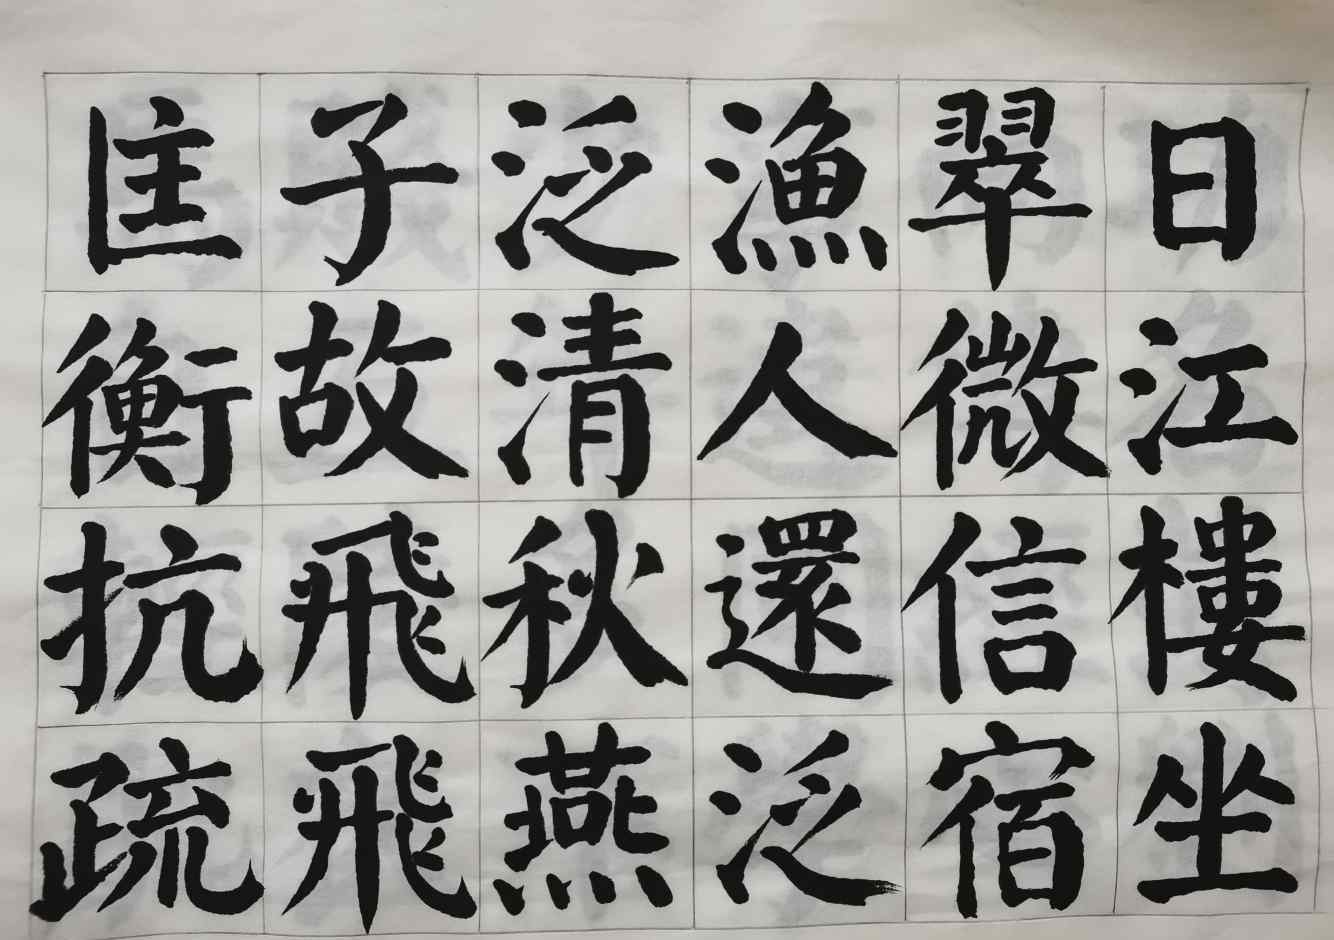 日江樓坐
翠微信宿
漁人還泛
泛清秋燕
子故飛飛
匡衡抗疏